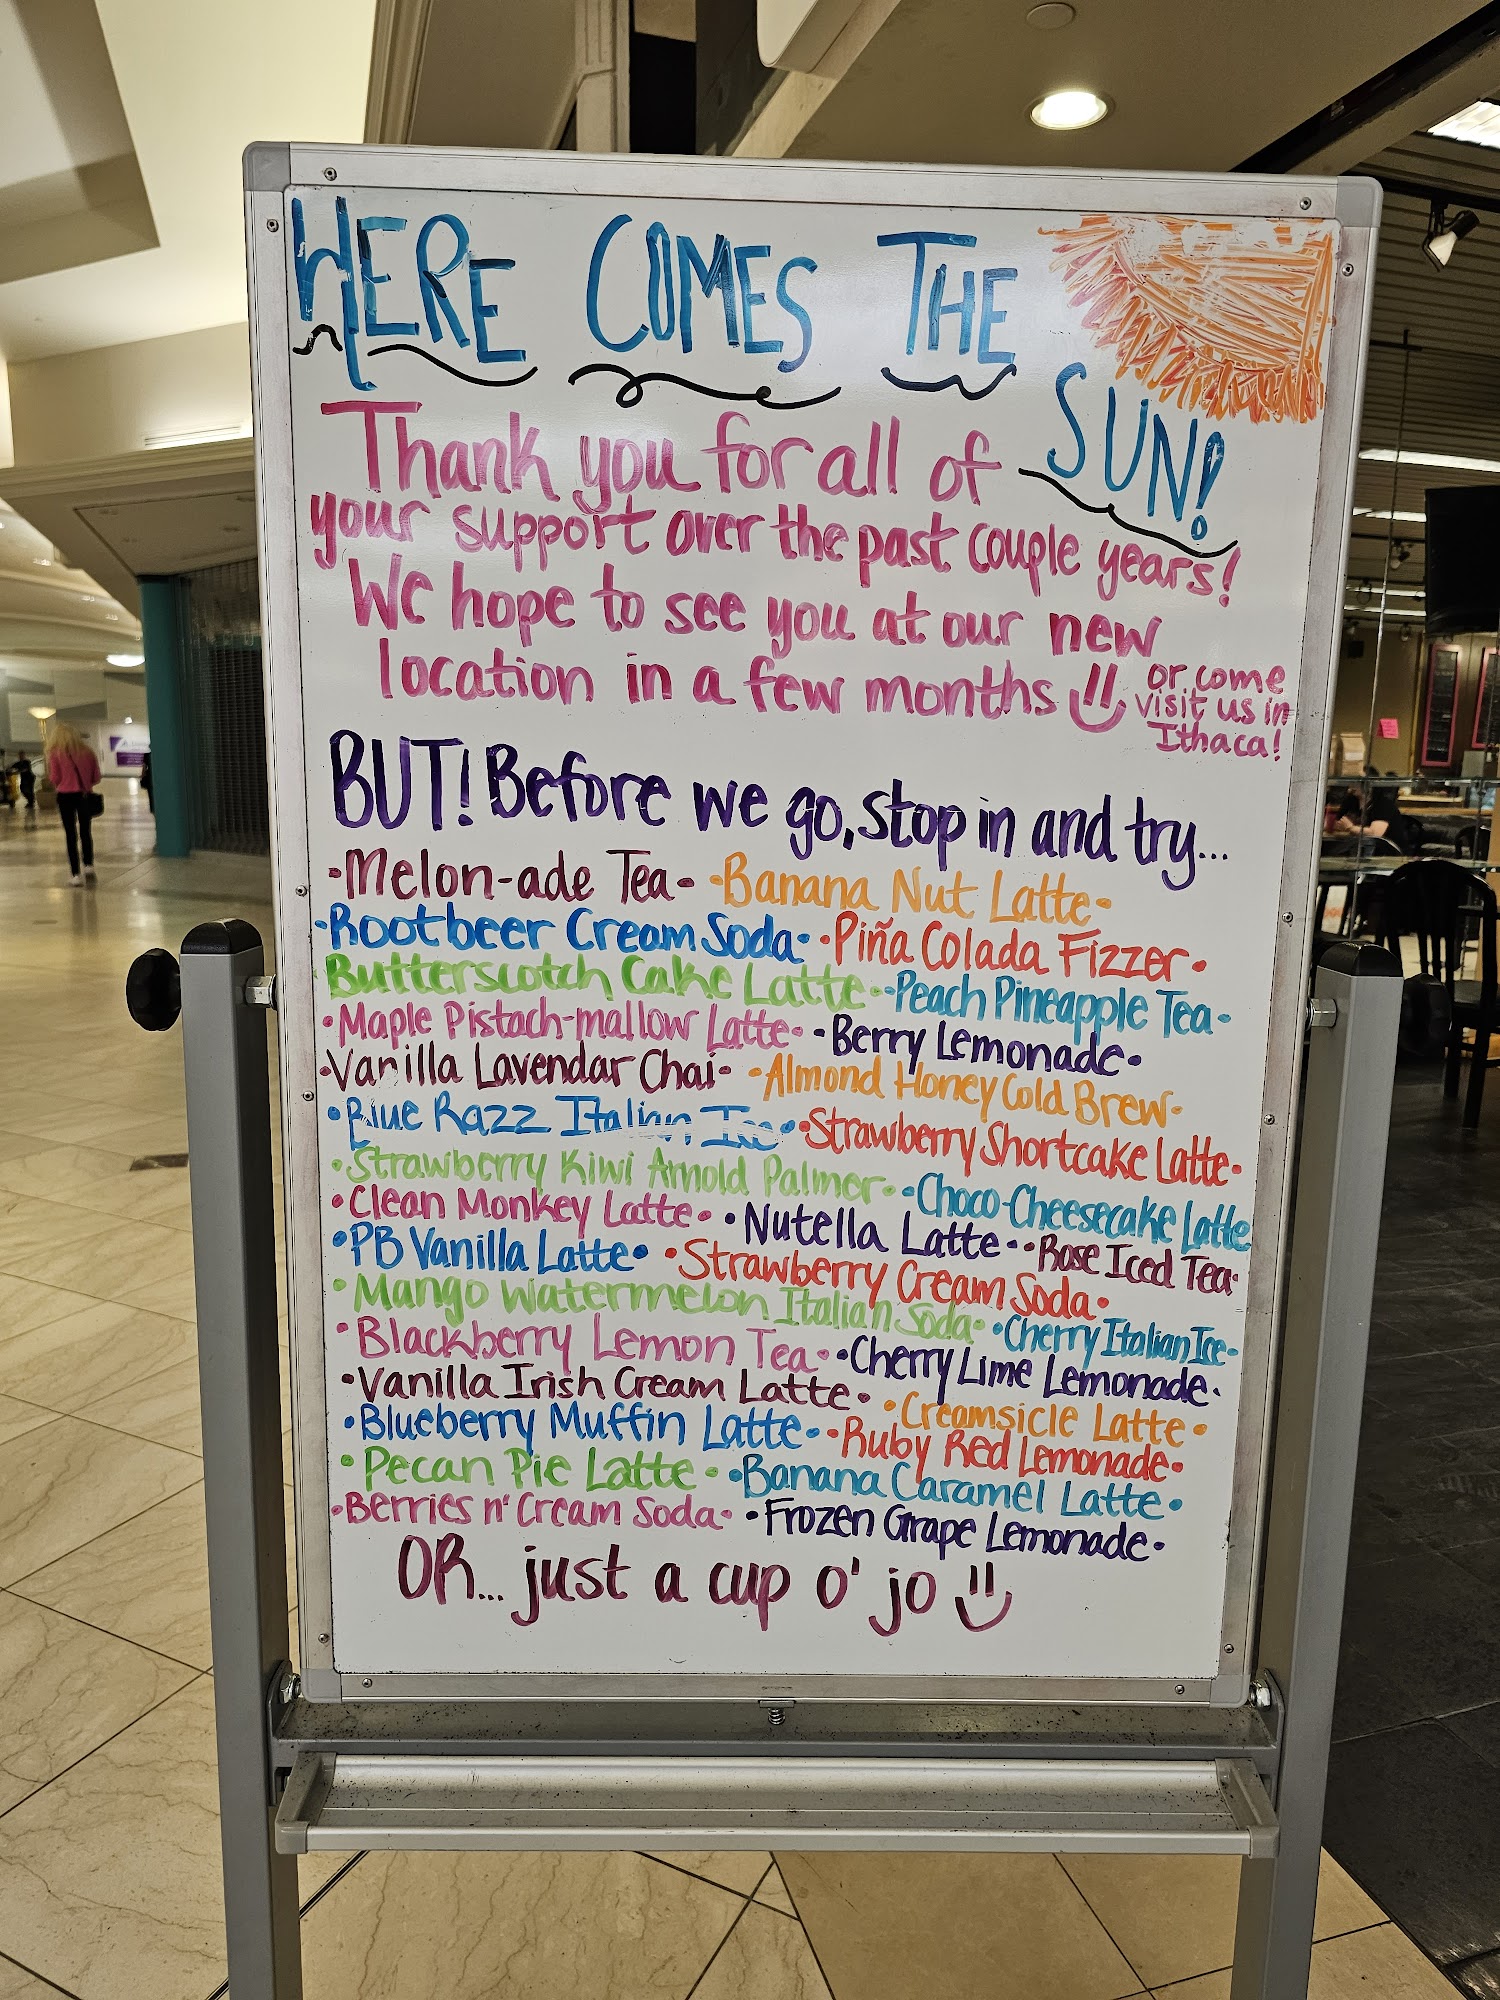 HERE COMES THE
SUN!
Thank you for all of
your support over the past couple years!
We hope to see you at our new
location in a few months
or come
visit us in
Ithaca!
BUT! Before we go, stop in and try...
•Melon-ade Tea• •Banana Nut Latte•
•Rootbeer Cream Soda• •Piña Colada Fizzer•
•Butterscotch Cake Latte• •Peach Pineapple Tea•
•Maple Pistach-mallow Latte• •Berry Lemonade•
•Vanilla Lavendar Chai• •Almond Honey Cold Brew•
•Blue Razz Italian Ice• •Strawberry Shortcake Latte•
•Strawberry Kiwi Arnold Palmer• •Choco-Cheesecake Latte
•Clean Monkey Latte• •Nutella Latte• •Rose Iced Tea•
•PB Vanilla Latte• •Strawberry Cream Soda•
•Mango Watermelon Italian Soda• •Cherry Italian Ice•
•Blackberry Lemon Tea• •Cherry Lime Lemonade•
•Vanilla Irish Cream Latte• •Creamsicle Latte•
•Blueberry Muffin Latte• •Ruby Red Lemonade•
•Pecan Pie Latte• •Banana Caramel Latte•
•Berries n' Cream Soda• •Frozen Grape Lemonade•
OR... just a cup o' jo